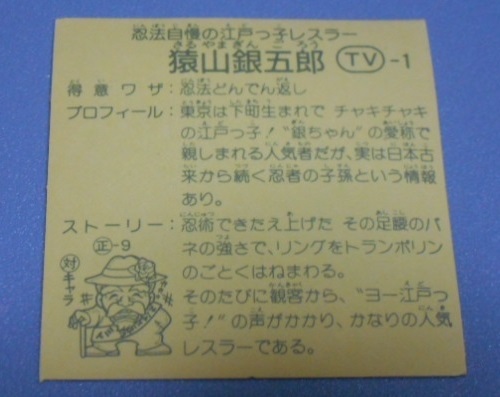 忍法自慢の江戸っ子レスラー
さる やま ぎん ご ろう
猿山銀五郎 TV-1
得意ワザ:忍法どんでん返し
プロフィール:東京は下町生まれで チャキチャキ
の江戸っ子!“銀ちゃん”の愛称で
親しまれる人気者だが、実は日本古
来から続く忍者の子孫という情報
あり。
ストーリー:忍術できたえ上げた その足腰のバ
正-9
ネの強さで、リングをトランポリン
対キャラ
のごとくはねまわる。
そのたびに観客から、“ヨー江戸っ
子!”の声がかかり、かなりの人気
レスラーである。